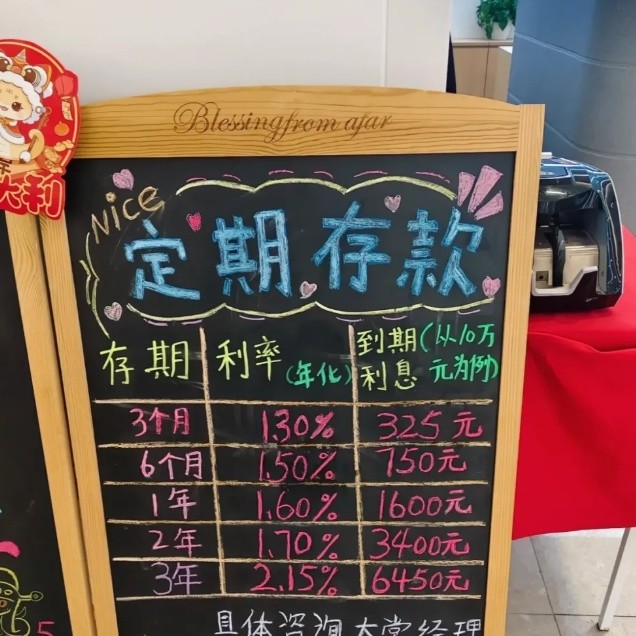 Blessing from ajar
Nice
定期存款
存期 利率(年化) 到期利息(以10万元为例)
3个月 1.30% 325元
6个月 1.50% 750元
1年 1.60% 1600元
2年 1.70% 3400元
3年 2.15% 6450元
具体咨询大堂经理
大利
5